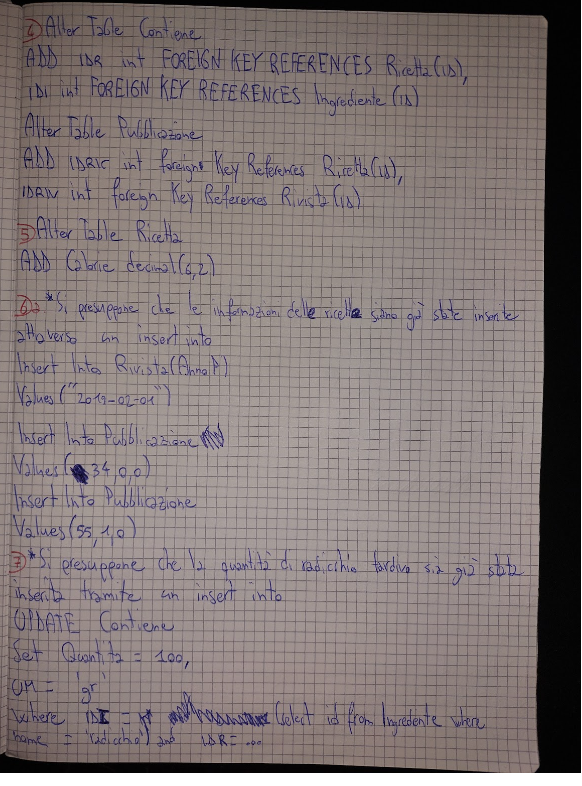 ④ Alter Table Contiene
ADD IDR int FOREIGN KEY REFERENCES Ricetta(ID),
IDI int FOREIGN KEY REFERENCES Ingrediente(ID)
Alter Table Pubblicazione
ADD IDRIC int foreign Key References Ricetta(ID),
IDRIV int foreign Key References Rivista(ID)
⑤ Alter Table Ricetta
ADD Calorie decimal(6,2)
⑥ *Si presuppone che le informazioni delle ricette siano già state inserite
attraverso un insert into
Insert Into Rivista(AnnoP)
Values("2019-02-01")
Insert Into Pubblicazione
Values(34,0,0)
Insert Into Pubblicazione
Values(55,1,0)
⑦ *Si presuppone che la quantità di radicchio tardivo sia già stata
inserita tramite un insert into
UPDATE Contiene
Set Quantita = 100,
UM = 'gr'
where IDI = (select id from Ingrediente where
name = 'radicchio') and IDR= ...